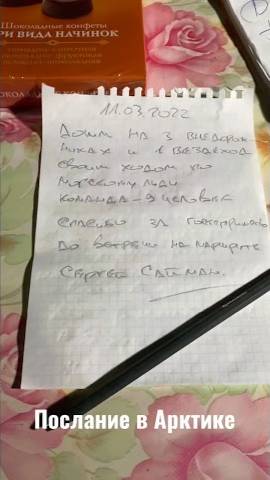 Шоколадные конфеты
РИ ВИДА НАЧИНОК
11.03.2022
Дошли на 3 внедорож
никах и 1 вездеход
своим ходом по
морскому льду
команда - 9 человек
спасибо за гостеприимство
до встречи на маршруте
Сергей Сайман.
Послание в Арктике